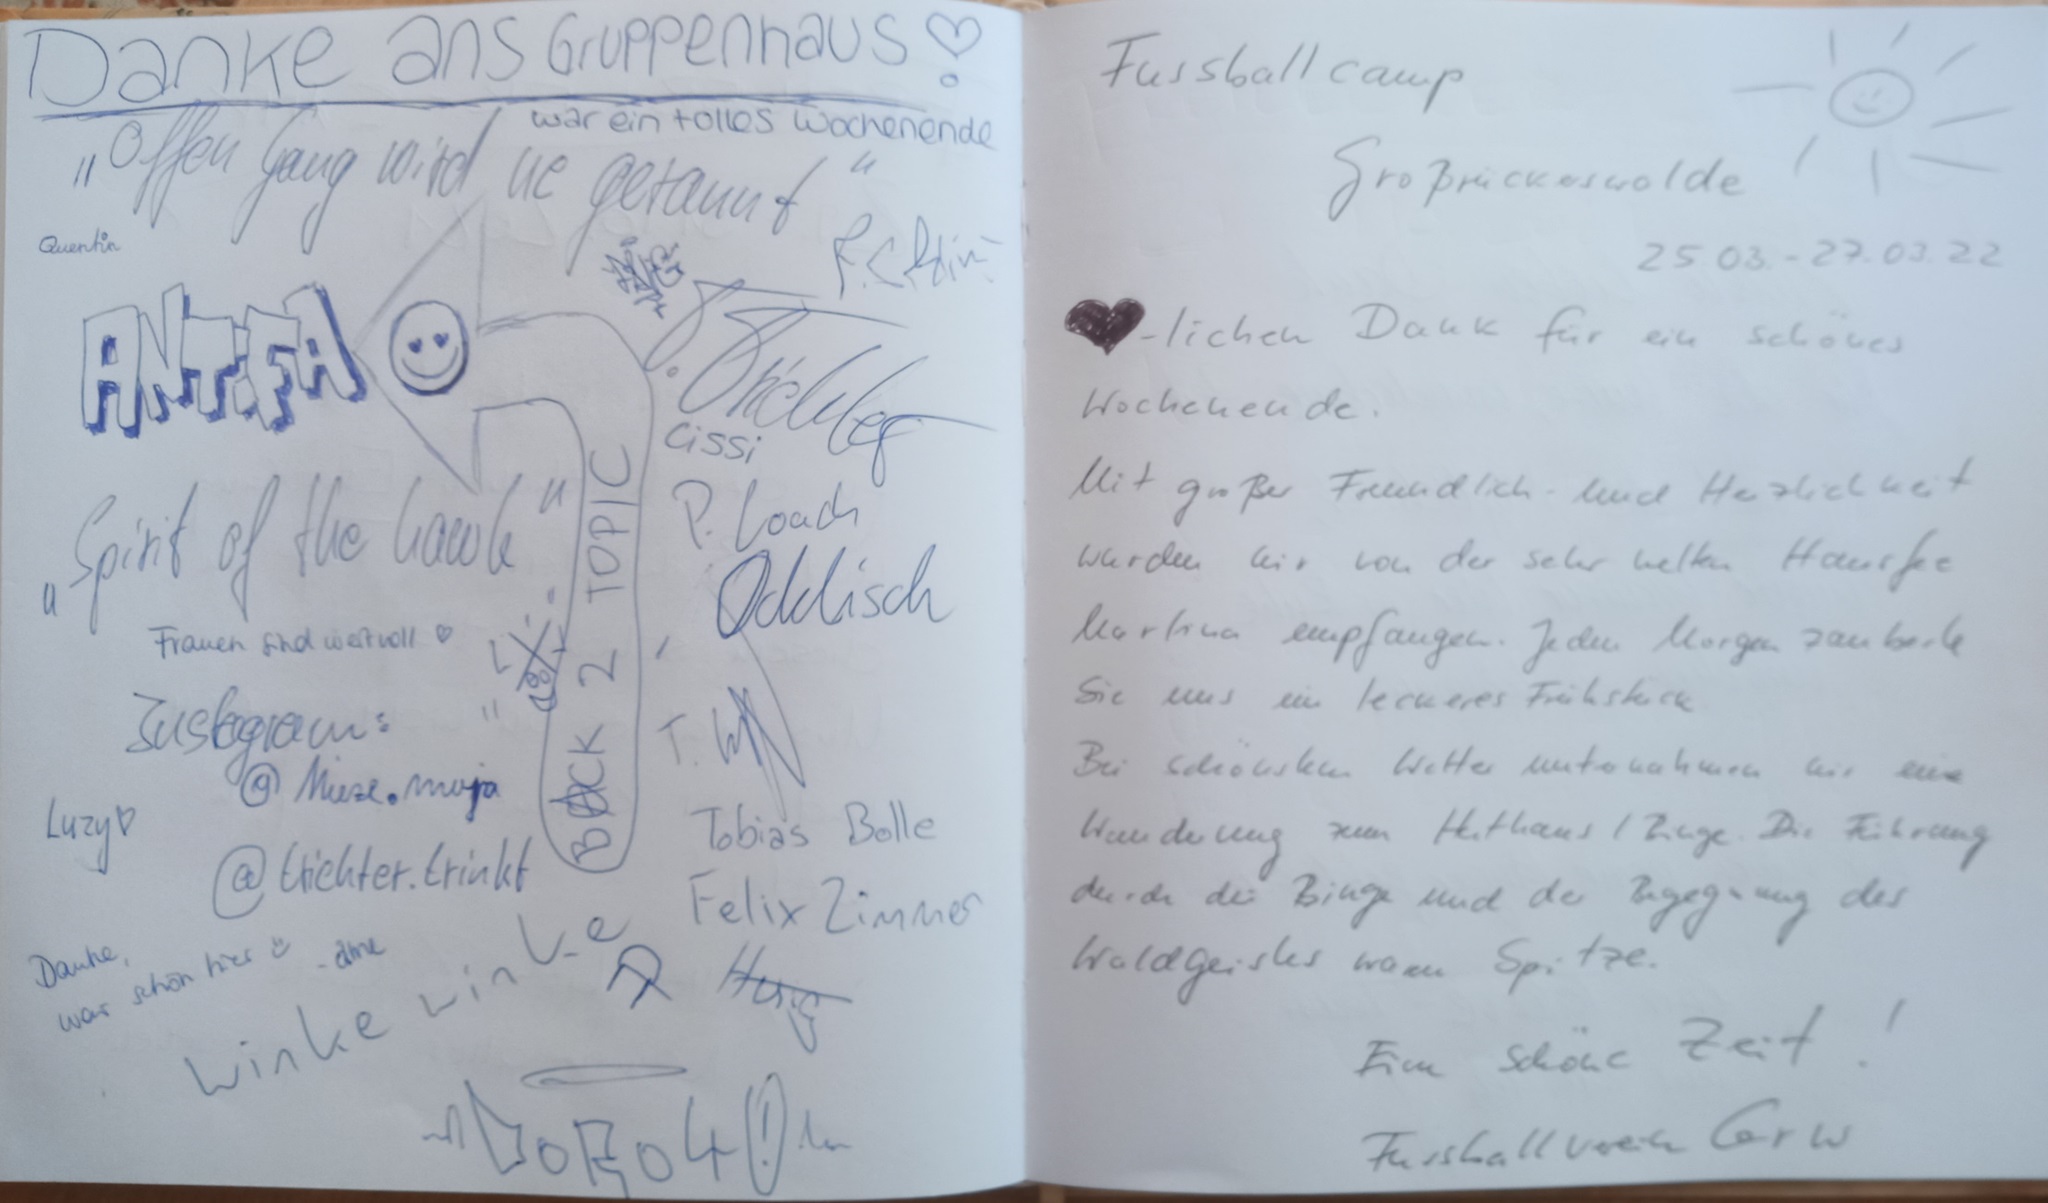 Danke ans Gruppenhaus!
war ein tolles Wochenende
„Offen Gang wird ne getannt“
Quentin
ANTIFA
Cissi
P. Loach
„Spirit of the hawk“
Oddisch
BACK 2 TOPIC
Frauen sind wertvoll ♡
Instagram:
@ Mieze.moja
Luzy ♡
@trichter.trinkt
T.
Tobias Bolle
Felix Zimmer
Danke,
war schön hier
Winke winke
Fussballcamp
Großrückerswalde
25.03.-27.03.22
♥-lichen Dank für ein schönes
Wochenende.
Mit großer Freundlich- und Herzlichkeit
wurden wir von der sehr netten Hausfee
Martina empfangen. Jeden Morgen zauberte
Sie uns ein leckeres Frühstück
Bei schönsten Wetter unternahmen wir eine
Wanderung zum Huthaus / Binge. Die Führung
durch die Binge und der Begegnung des
Waldgeistes waren Spitze.
Eine schöne Zeit!
Fussballverein Grw